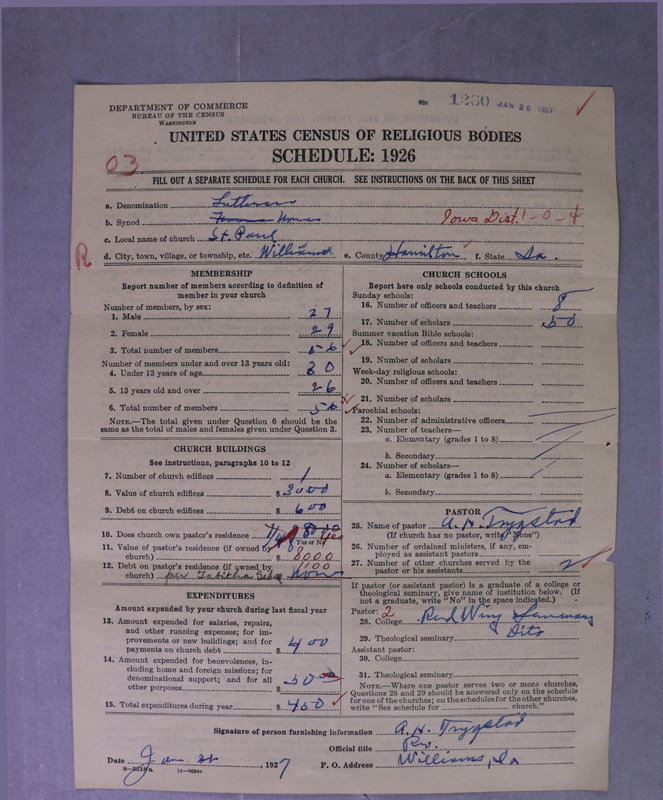 DEPARTMENT OF COMMERCE
BUREAU OF THE CENSUS
WASHINGTON
1260 JAN 26 1927
UNITED STATES CENSUS OF RELIGIOUS BODIES
SCHEDULE: 1926
03
FILL OUT A SEPARATE SCHEDULE FOR EACH CHURCH. SEE INSTRUCTIONS ON THE BACK OF THIS SHEET
a. Denomination Lutheran
b. Synod None Iowa Dist. 1-0-4
c. Local name of church St. Paul
R
d. City, town, village, or township, etc. Williams e. County Hamilton f. State Ia.
MEMBERSHIP
Report number of members according to definition of
member in your church
Number of members, by sex:
1. Male 27
2. Female 29
3. Total number of members 56
Number of members under and over 13 years old:
4. Under 13 years of age 30
5. 13 years old and over 26
6. Total number of members 56
NOTE.—The total given under Question 6 should be
same as the total of males and females given under Question 3.
CHURCH BUILDINGS
See instructions, paragraphs 10 to 12
7. Number of church edifices 1
8. Value of church edifices $ 3000
9. Debt on church edifices $ 600
10. Does church own pastor's residence Yes
Yes or No
11. Value of pastor's residence (if owned by
church) $ 8000
12. Debt on pastor's residence (if owned by
church) $ 1100
EXPENDITURES
Amount expended by your church during last fiscal year
13. Amount expended for salaries, repairs,
and other running expenses; for im-
provements or new buildings; and for
payments on church debt $ 400
14. Amount expended for benevolences, in-
cluding home and foreign missions; for
denominational support; and for all
other purposes $ 50
15. Total expenditures during year $ 450
CHURCH SCHOOLS
Report here only schools conducted by this church
Sunday schools:
16. Number of officers and teachers 8
17. Number of scholars 50
Summer vacation Bible schools:
18. Number of officers and teachers
19. Number of scholars
Week-day religious schools:
20. Number of officers and teachers
21. Number of scholars
Parochial schools:
22. Number of administrative officers
23. Number of teachers—
a. Elementary (grades 1 to 8)
b. Secondary
24. Number of scholars—
a. Elementary (grades 1 to 8)
b. Secondary
PASTOR
25. Name of pastor A. N. Trygstad
(If church has no pastor, write "None")
26. Number of ordained ministers, if any, em-
ployed as assistant pastors
27. Number of other churches served by the
pastor or his assistants 2
If pastor (or assistant pastor) is a graduate of a college or
theological seminary, give name of institution below. (If
not a graduate, write "No" in the space indicated.)
Pastor: 2
28. College Red Wing Seminary
29. Theological seminary Dito
Assistant pastor:
30. College
31. Theological seminary
NOTE.—Where one pastor serves two or more churches,
Questions 28 and 29 should be answered only on the schedule
for one of the churches; on the schedules for the other churches,
write "See schedule for church."
Signature of person furnishing information A. N. Trygstad
Official title Rev.
Date Jan , 1927 P. O. Address Williams, Ia